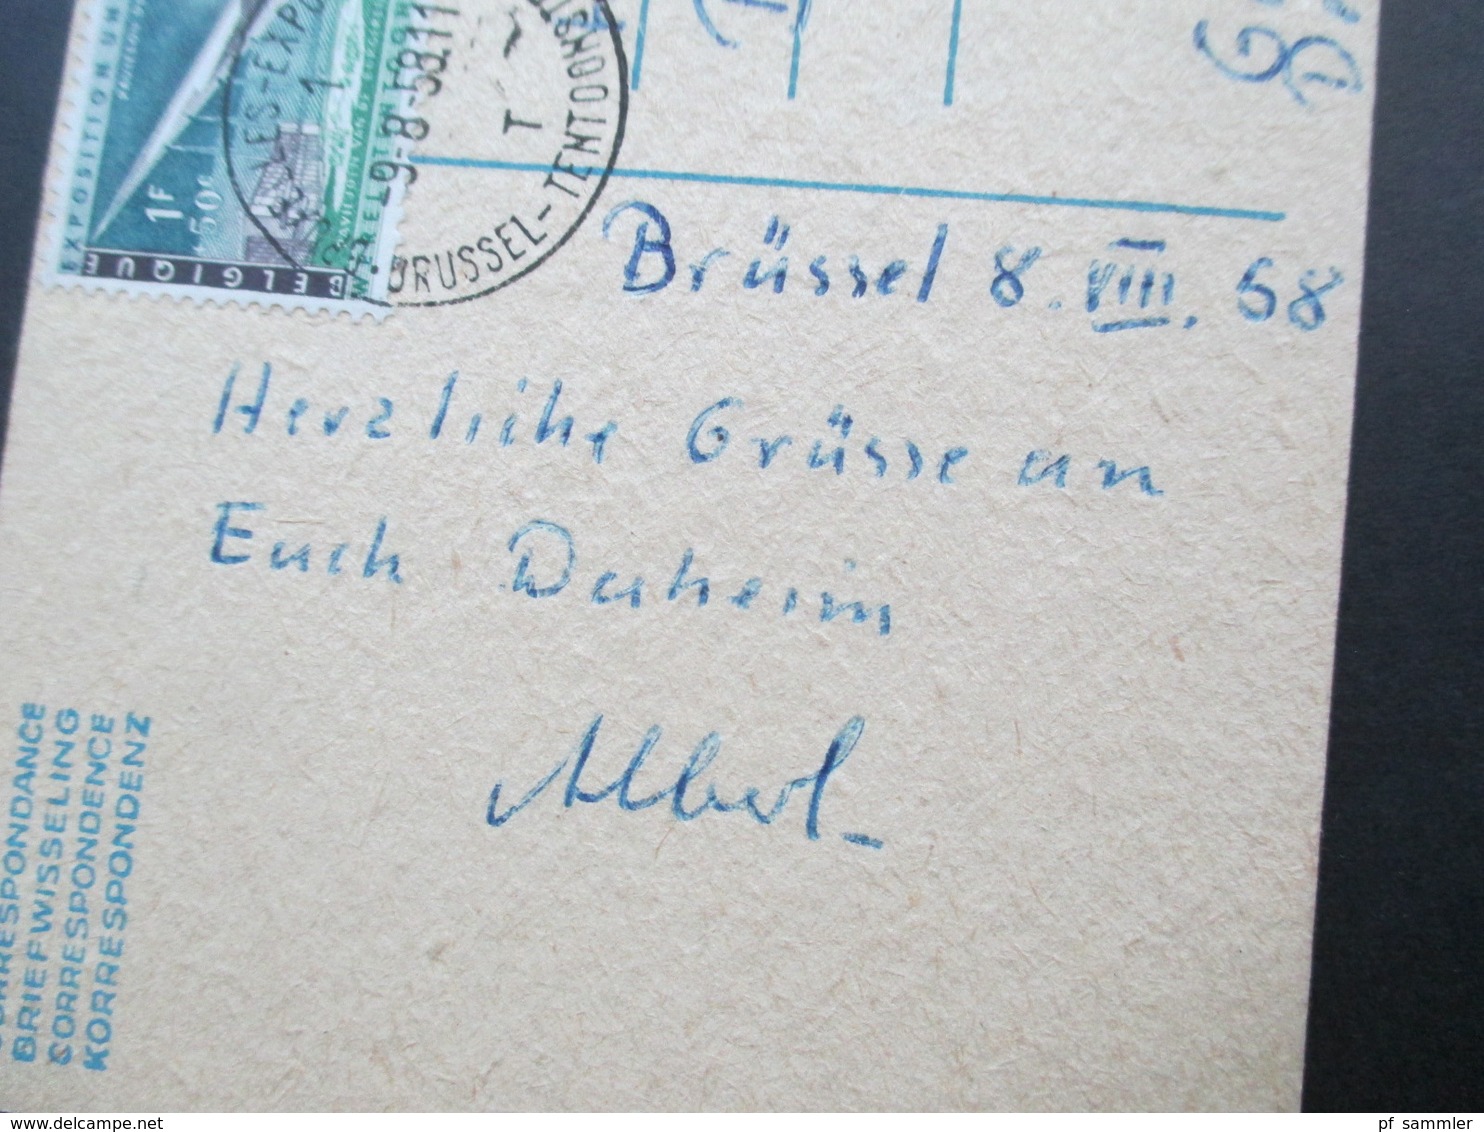 EXPOSITION UN
1F
50c
BELGIQUE
ES-EXPO
1
9-8-58 11
T
BRUSSEL-TENTOONST
Brüssel 8. VIII. 58
Herzliche Grüsse an
Euch Daheim
Albert
CORRESPONDANCE
BRIEFWISSELING
CORRESPONDENCE
KORRESPONDENZ
pf_sammler